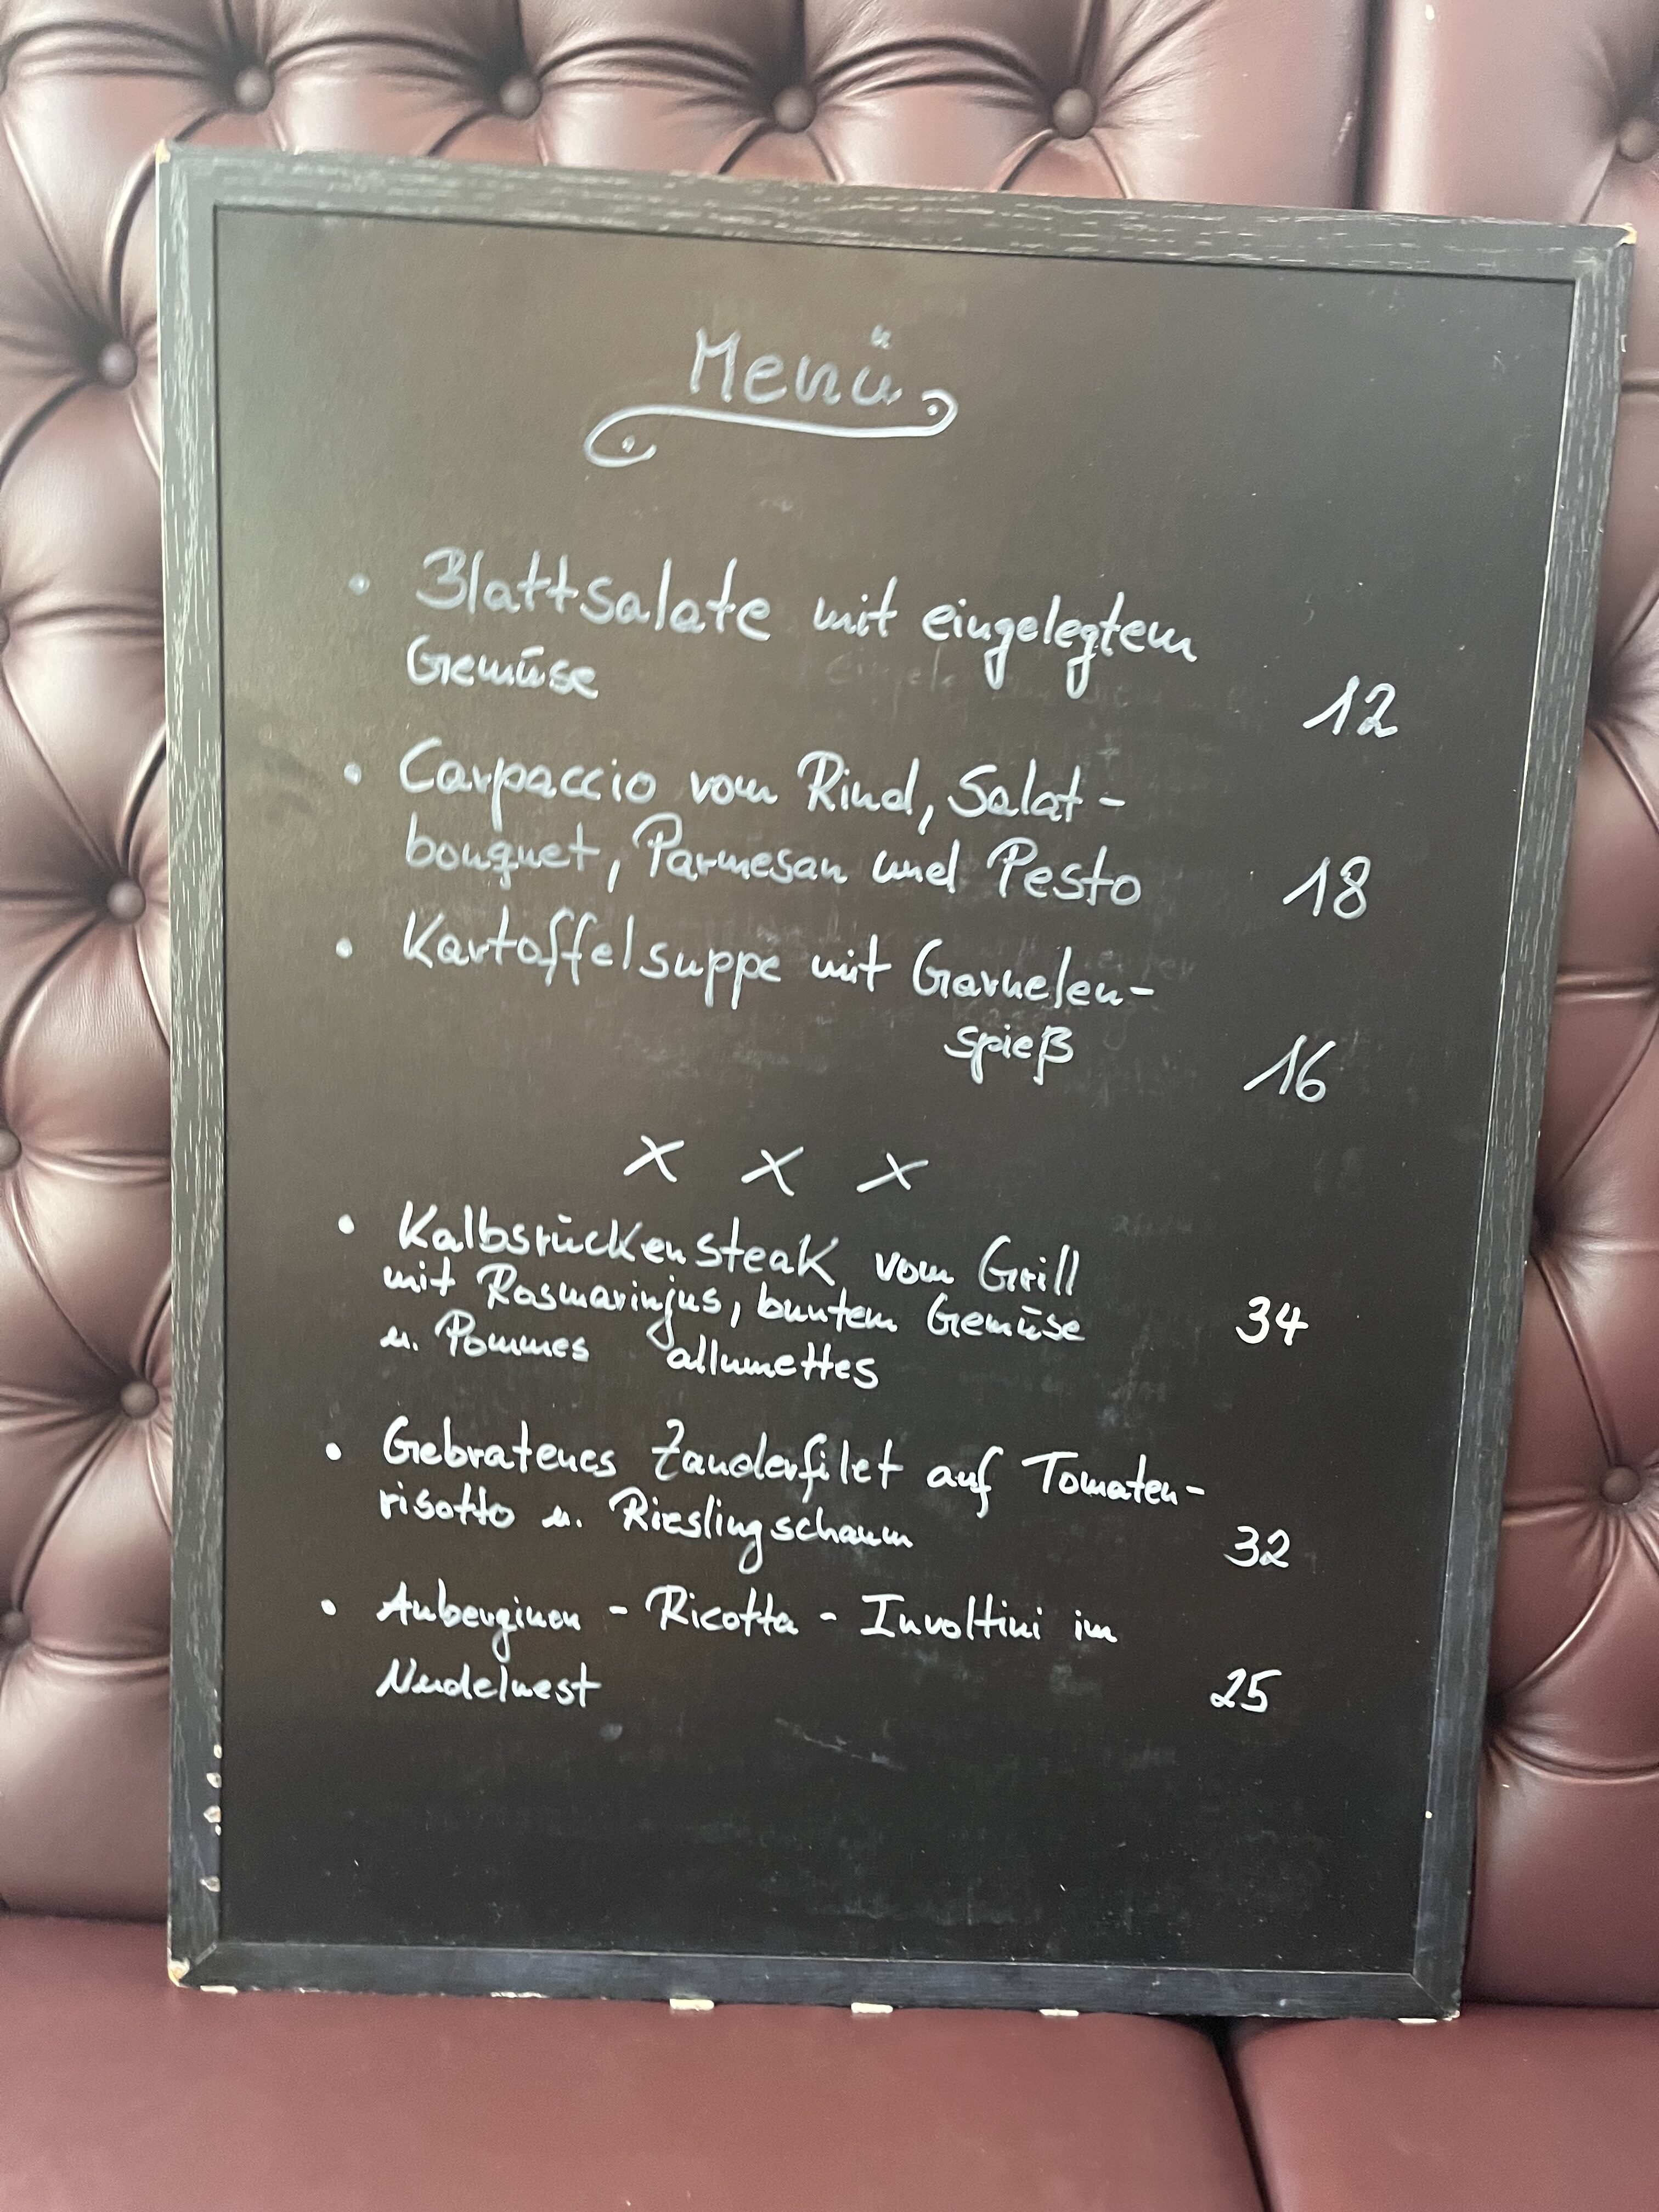 Menü
• Blattsalate mit eingelegtem
Gemüse 12
• Carpaccio vom Rind, Salat-
bouquet, Parmesan und Pesto 18
• Kartoffelsuppe mit Garnelen-
spieß 16
x x x
• Kalbsrückensteak vom Grill
mit Rosmarinjus, buntem Gemüse 34
u. Pommes allumettes
• Gebratenes Zanderfilet auf Tomaten-
risotto u. Rieslingschaum 32
• Auberginen - Ricotta - Involtini im
Nudelnest 25